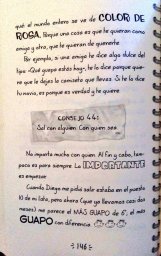 que el mundo entero se ve de COLOR DE
ROSA. Porque una cosa es que te quieran como
amigo y otra, que te quieran de quererte.
Por ejemplo, si una amiga te dice algo dulce del
tipo «Qué guapo estás hoy», te lo dice porque quie-
re que le dejes la camiseta que llevas. Si te lo dice
tu novia, es porque es verdad y te quiere.
CONSEJO 44:
Sal con alguien. Con quien sea.
No importa mucho con quien. Al fin y cabo, tam-
poco es para siempre. Lo IMPORTANTE
es empezar.
Cuando Diego me pidió salir estaba en el puesto
10 de mi lista, pero ahora (que ya llevamos casi dos
meses) me parece el MÁS GUAPO de 6º, el más
GUAPO con diferencia
146